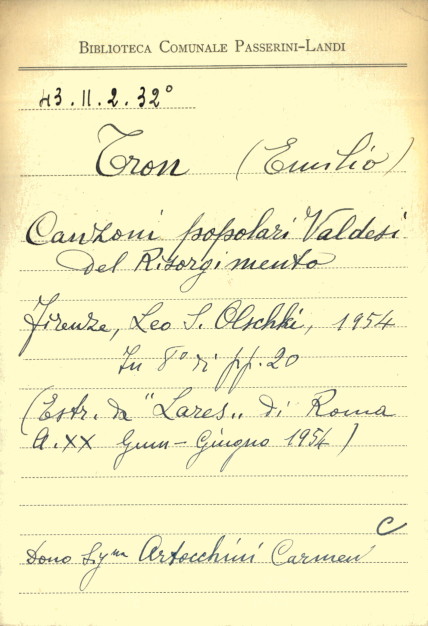 BIBLIOTECA COMUNALE PASSERINI-LANDI
43.II.2.32°
Tron (Emilio)
Canzoni popolari Valdesi
del Risorgimento
Firenze, Leo S. Olschki, 1954
In 8° di pp. 20
(Estr. da "Lares" di Roma
A. XX Genn-Giugno 1954)
C
Dono Sigⁿᵃ Artocchini Carmen